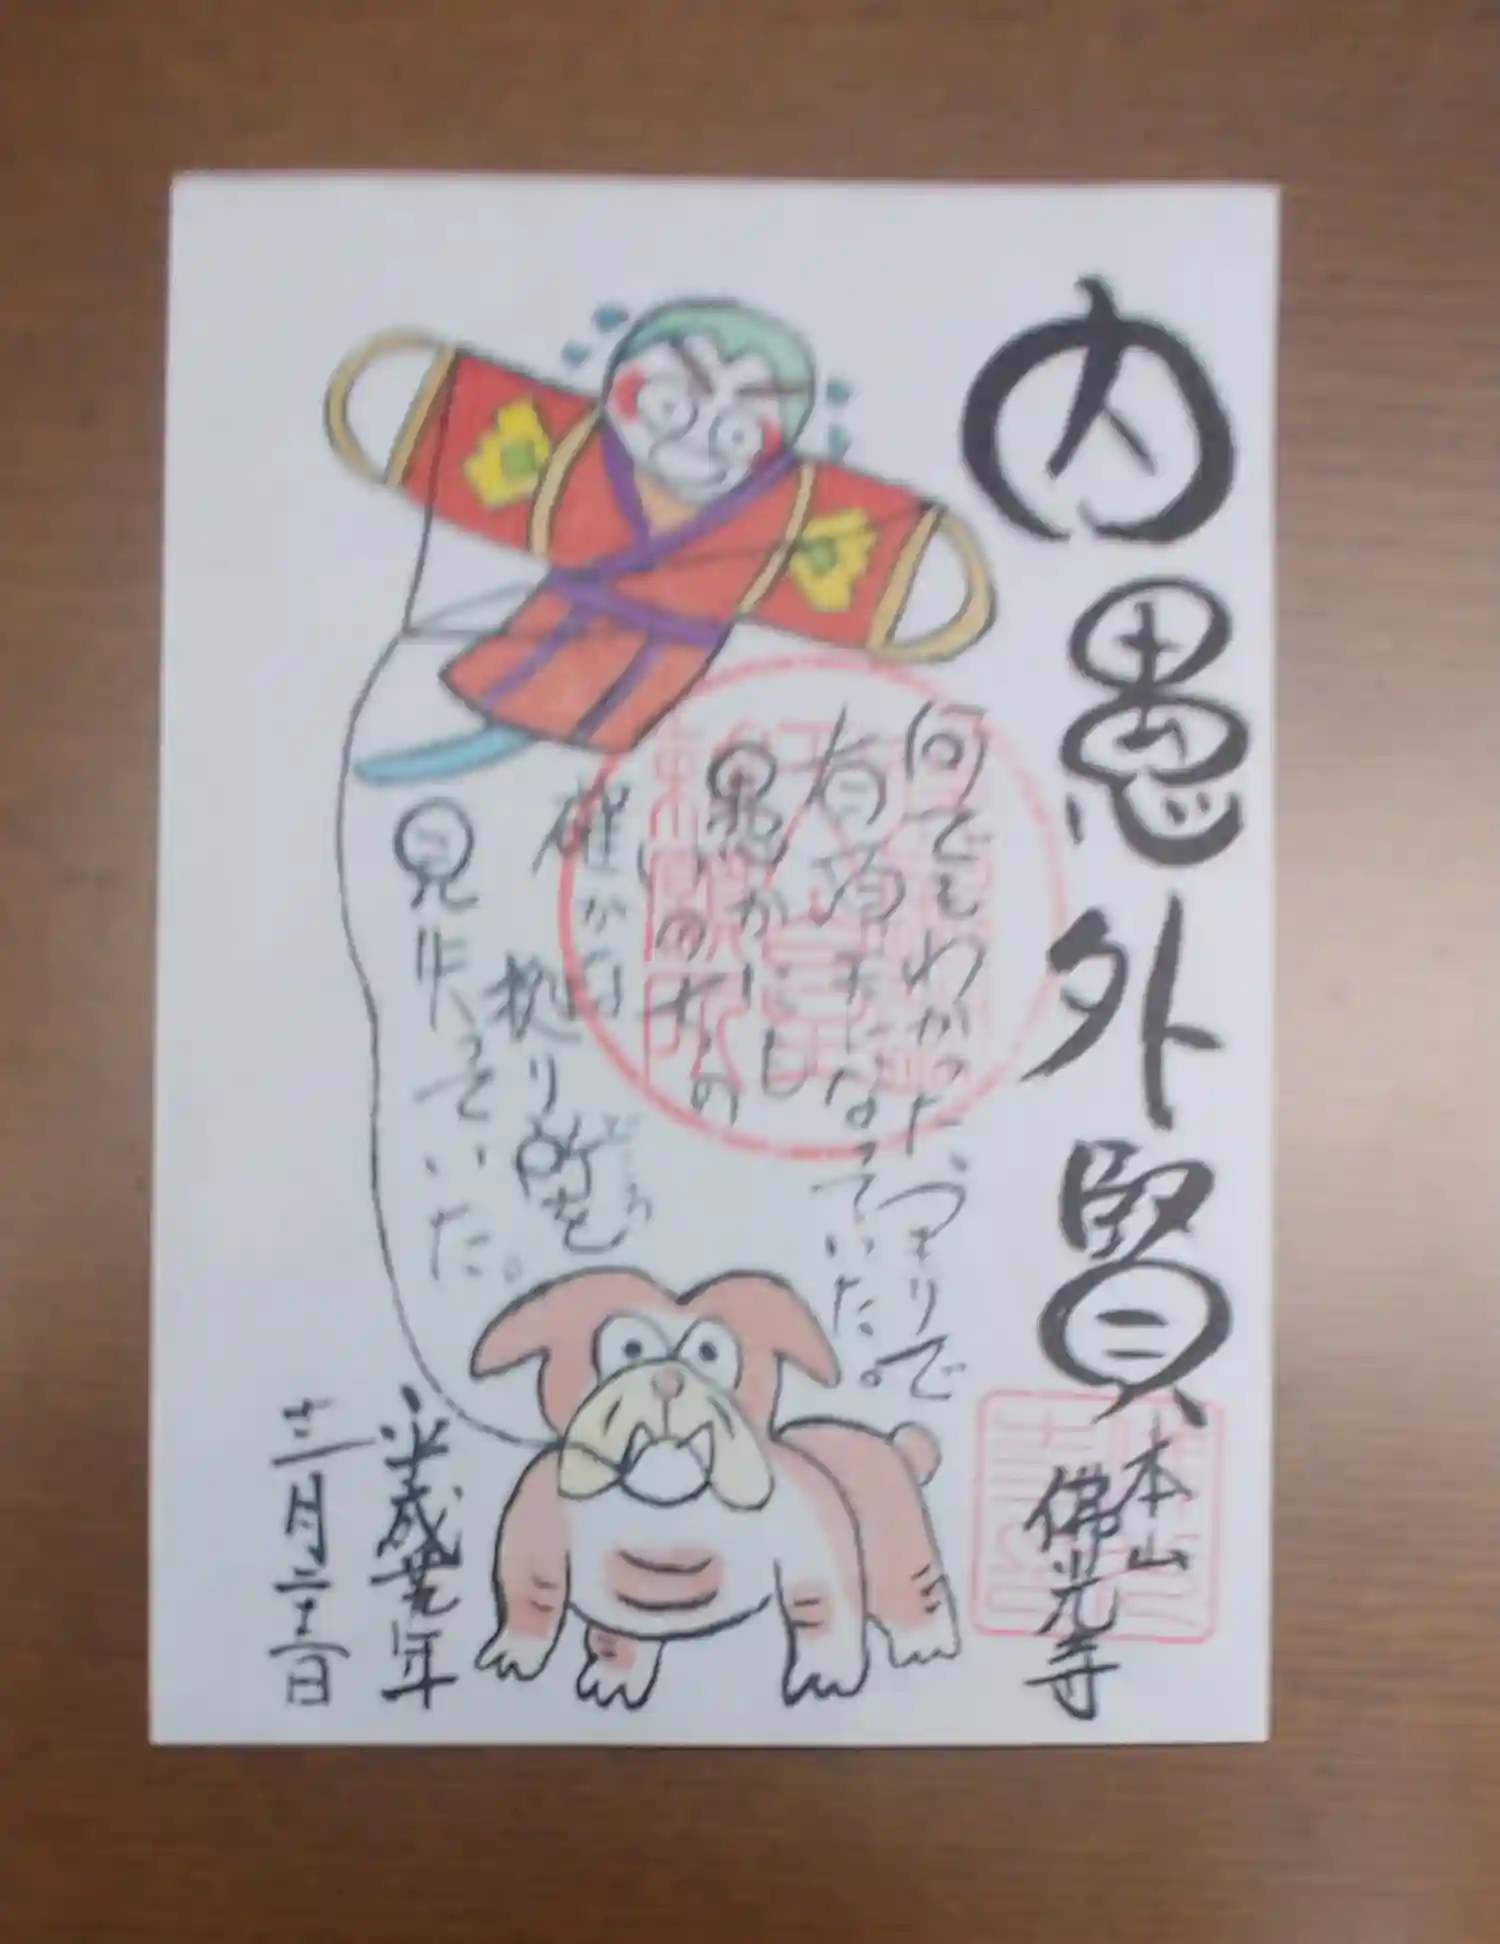 内愚外賢
本山
佛光寺
何でもわかった、つもりで
有頂天になっていた。
愚かにも
いのちの
確かな
拠り所を
どころ
見失っていた。
平成卅年